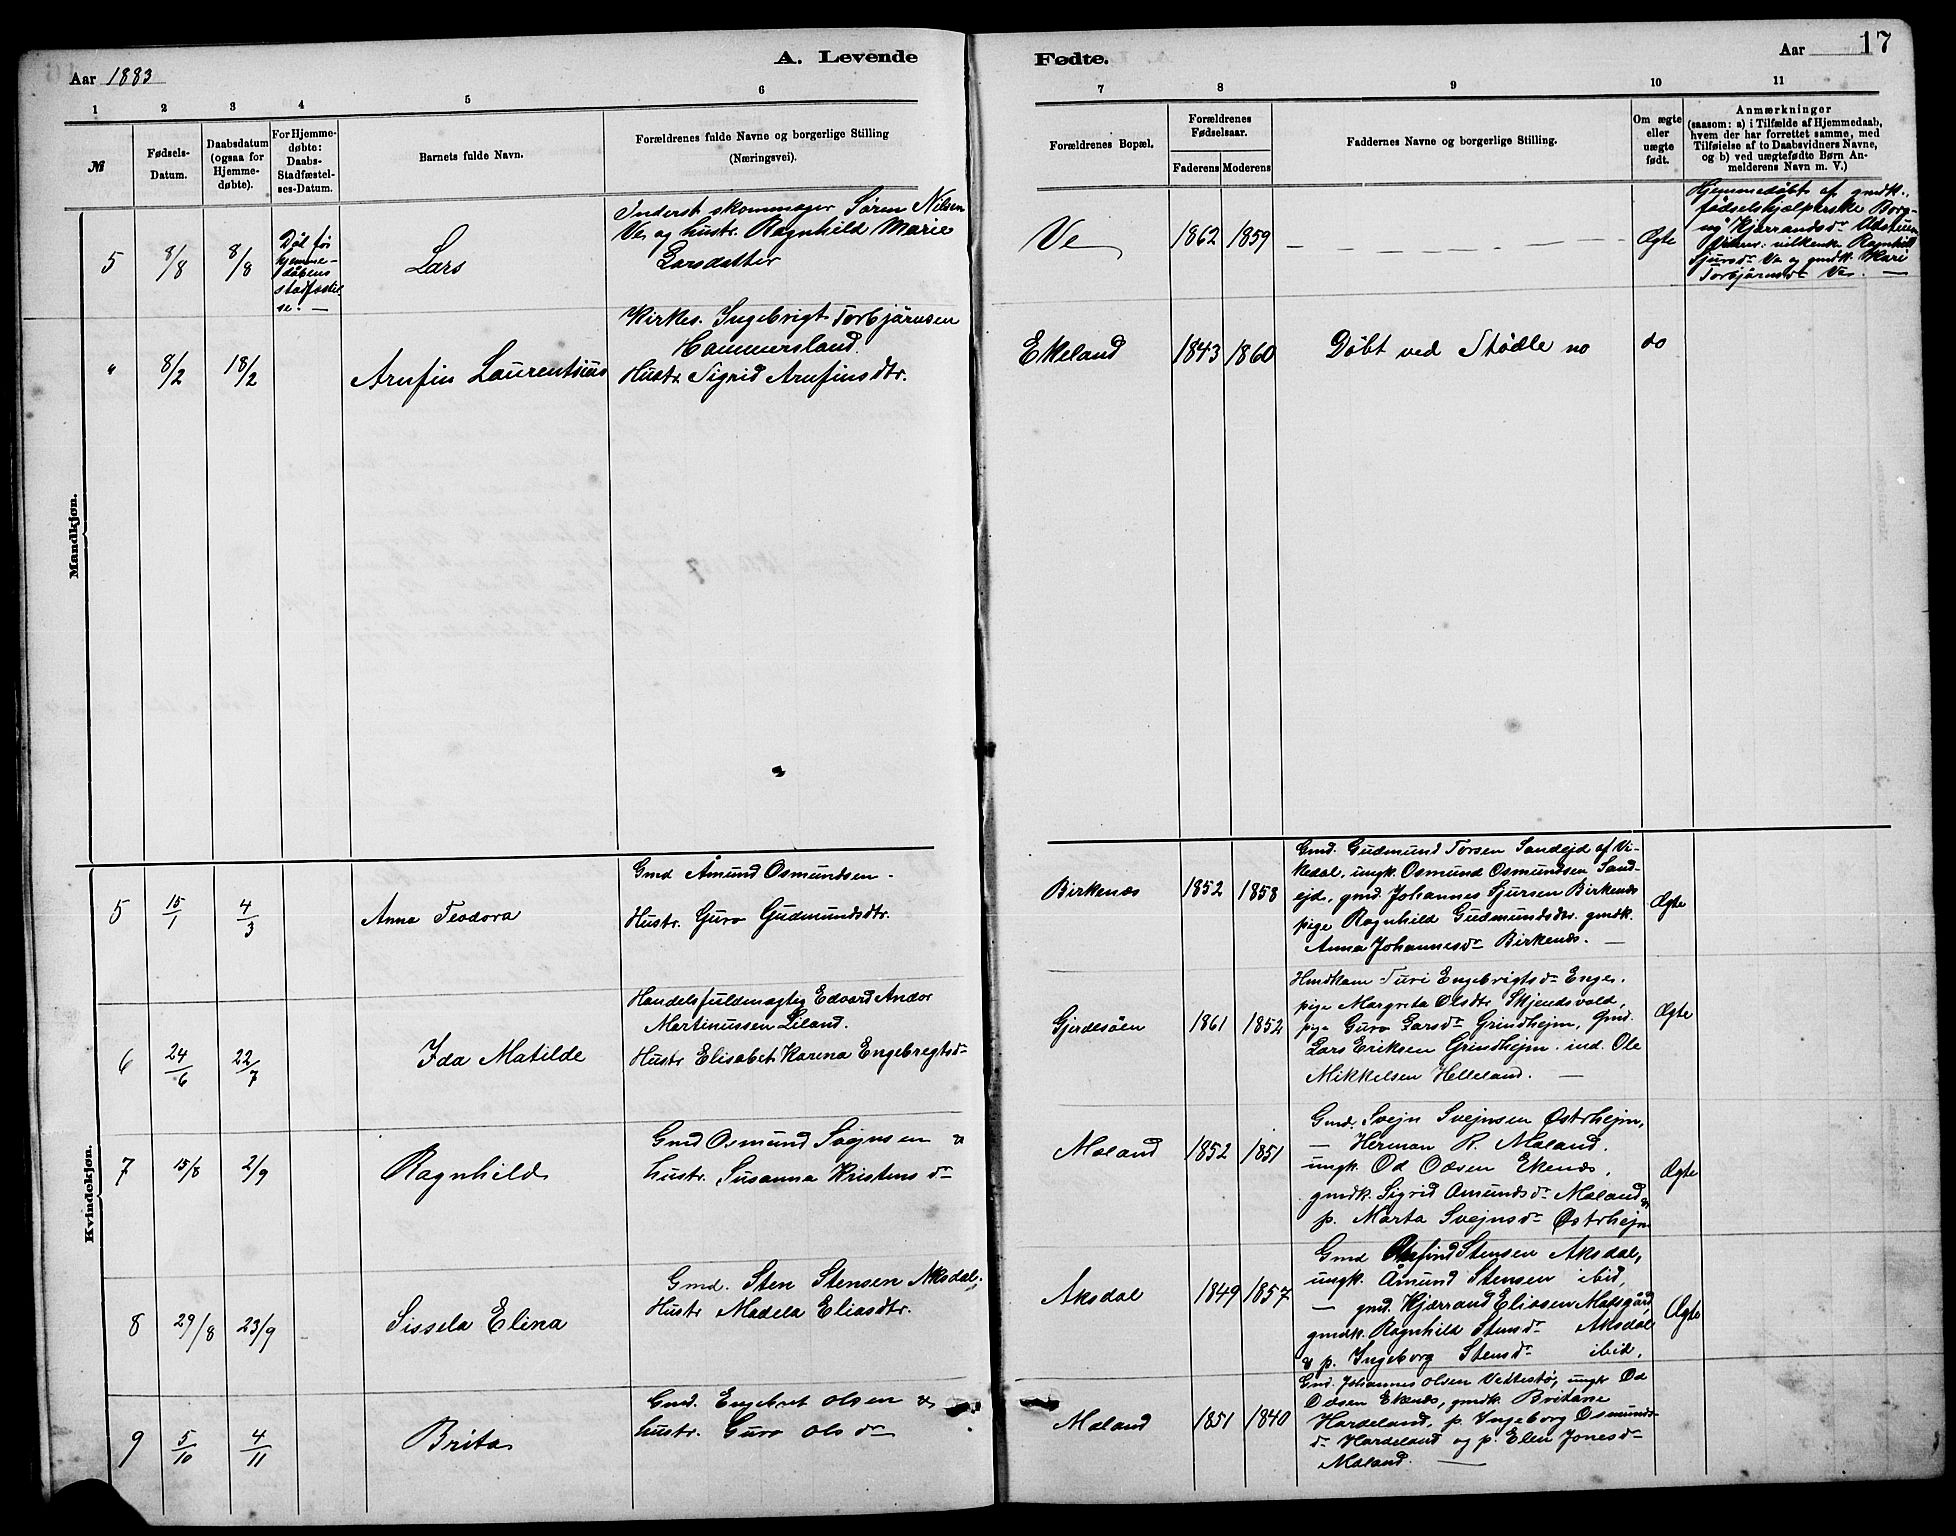 Aar 1883
A. Levende
Fødte.
Aar
17
1 2 3 4 5 6 7 8 9 10 11
№
Fødsels-
Datum.
Daabsdatum
(ogsaa for
Hjemme-
døbte).
For Hjemme-
døbte:
Daabs-
Stadfæstel-
ses-Datum.
Barnets fulde Navn.
Forældrenes fulde Navne og borgerlige Stilling
(Næringsvei).
Forældrenes Bopæl.
Forældrenes
Fødselsaar.
Faderens Moderens
Faddernes Navne og borgerlige Stilling.
Om ægte
eller
uægte
født.
Anmærkninger
(saasom: a) i Tilfælde af Hjemmedaab,
hvem der har forrettet samme, med
Tilføielse af to Daabsvidners Navne,
og b) ved uægtefødte Børn An-
melderens Navn m. V.)
Mandkjøn.
5
8/8
8/8
Død før
hjemme-
dåbens
stadfæstel-
se. —
Lars
Inderst skommager Søren Nilsen
Ve og hustr. Ragnhild Marie
Larsdatter
Ve
1862 1859
— — — — — —
Ægte
Hjemmedøbt af gmdk.
fødselshjælperske Borg-
ny Kjærrandsdr
Ragnhild
Sjursdr Ve og gmdk. Mari
Torbjørnsdr Ve. —
"
8/2
18/2
Arnfin Laurentsius
Kirkes. Ingebrigt Torbjørnsen
Hammersland.
Hustr. Sigrid Arnfinsdtr.
Ekeland
1843 1860
Døbt ved Stødle no
do
Kvindekjøn.
5
15/1
4/3
Anna Teodora
Gmd Åmund Osmundsen.
Hustr. Guro Gudmundsdtr.
Birkenæs
1852 1858
Gmd. Gudmund Torsen Sandejd af Vi-
kedal, ungk. Osmund Osmundsen Sand-
ejd, gmd. Johannes Sjursen Birkenæs
pige Ragnhild Gudmundsdtr. gmdk.
Anna Johannesdr Birkenæs. —
Ægte
6
24/6
22/7
Ida Matilde
Handelsfuldmægtig Edvard Andor
Martinussen Liland.
Hustr Elisabet Karena Engebregtsdr
Gjerdesøen
1861 1852
Turi Engebrigtsdr Enge.
pige Margreta Olsdtr Skjendsvold,
pige Guro Larsdr Grindhejm, Gmd.
Lars Eriksen Grindhejm. ind. Ole
Mikkelsen Helleland. —
Ægte
7
15/8
2/9
Ragnhild
Gmd Osmund Svejnsen &
hustr. Susanna Kristensdr
Maland
1852 1851
Gmd. Svejn Svejnsen Østrhejm,
— Herman R. Maland.
ungk. Od Odsen Ekenæs,
gmdk. Sigrid Amundsdr Maland &
p. Marta Svejnsdr Østrhejm
Ægte
8
29/8
23/9
Sissela Elina
Gmd. Sten Stensen Aksdal.
Hustr Madela Eliasdtr.
Aksdal
1849 1857
Gmd Stensen Aksdal,
ungk. Åmund Stensen ibid,
— gmd. Kjærrand Eliasen Matsgård,
gmdk. Ragnhild Stensdr Aksdal
& p. Ingeborg Stensdr ibid.
Ægte
9
5/10
4/11
Brita
Gmd. Engebret Olsen &
hustr. Guro Olsdr
Maland
1851 1840
Gmd. Johannes Olsen Vettestø, ungk Od
Odsen Ekenæs, gmdk. Britane
Hardeland, p. Ingeborg Osmunds-
dr Hardeland og p. Elen Jonesdr
Maland. —